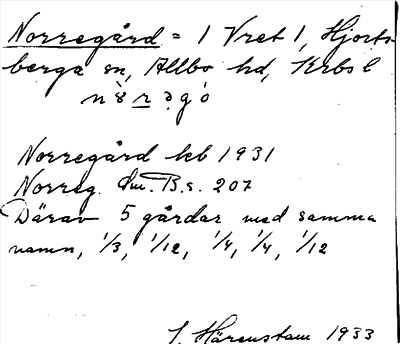 Norregård = 1 Vret 1, Hjorts-
berga sn, Allbo hd, Krbs l
nò̀rəgo
Norregård kb 1931
Norreg. Sm. B.s. 207
Därav 5 gårdar med samma
namn, 1/3, 1/12, 1/4, 1/4, 1/12
J. Härenstam 1933